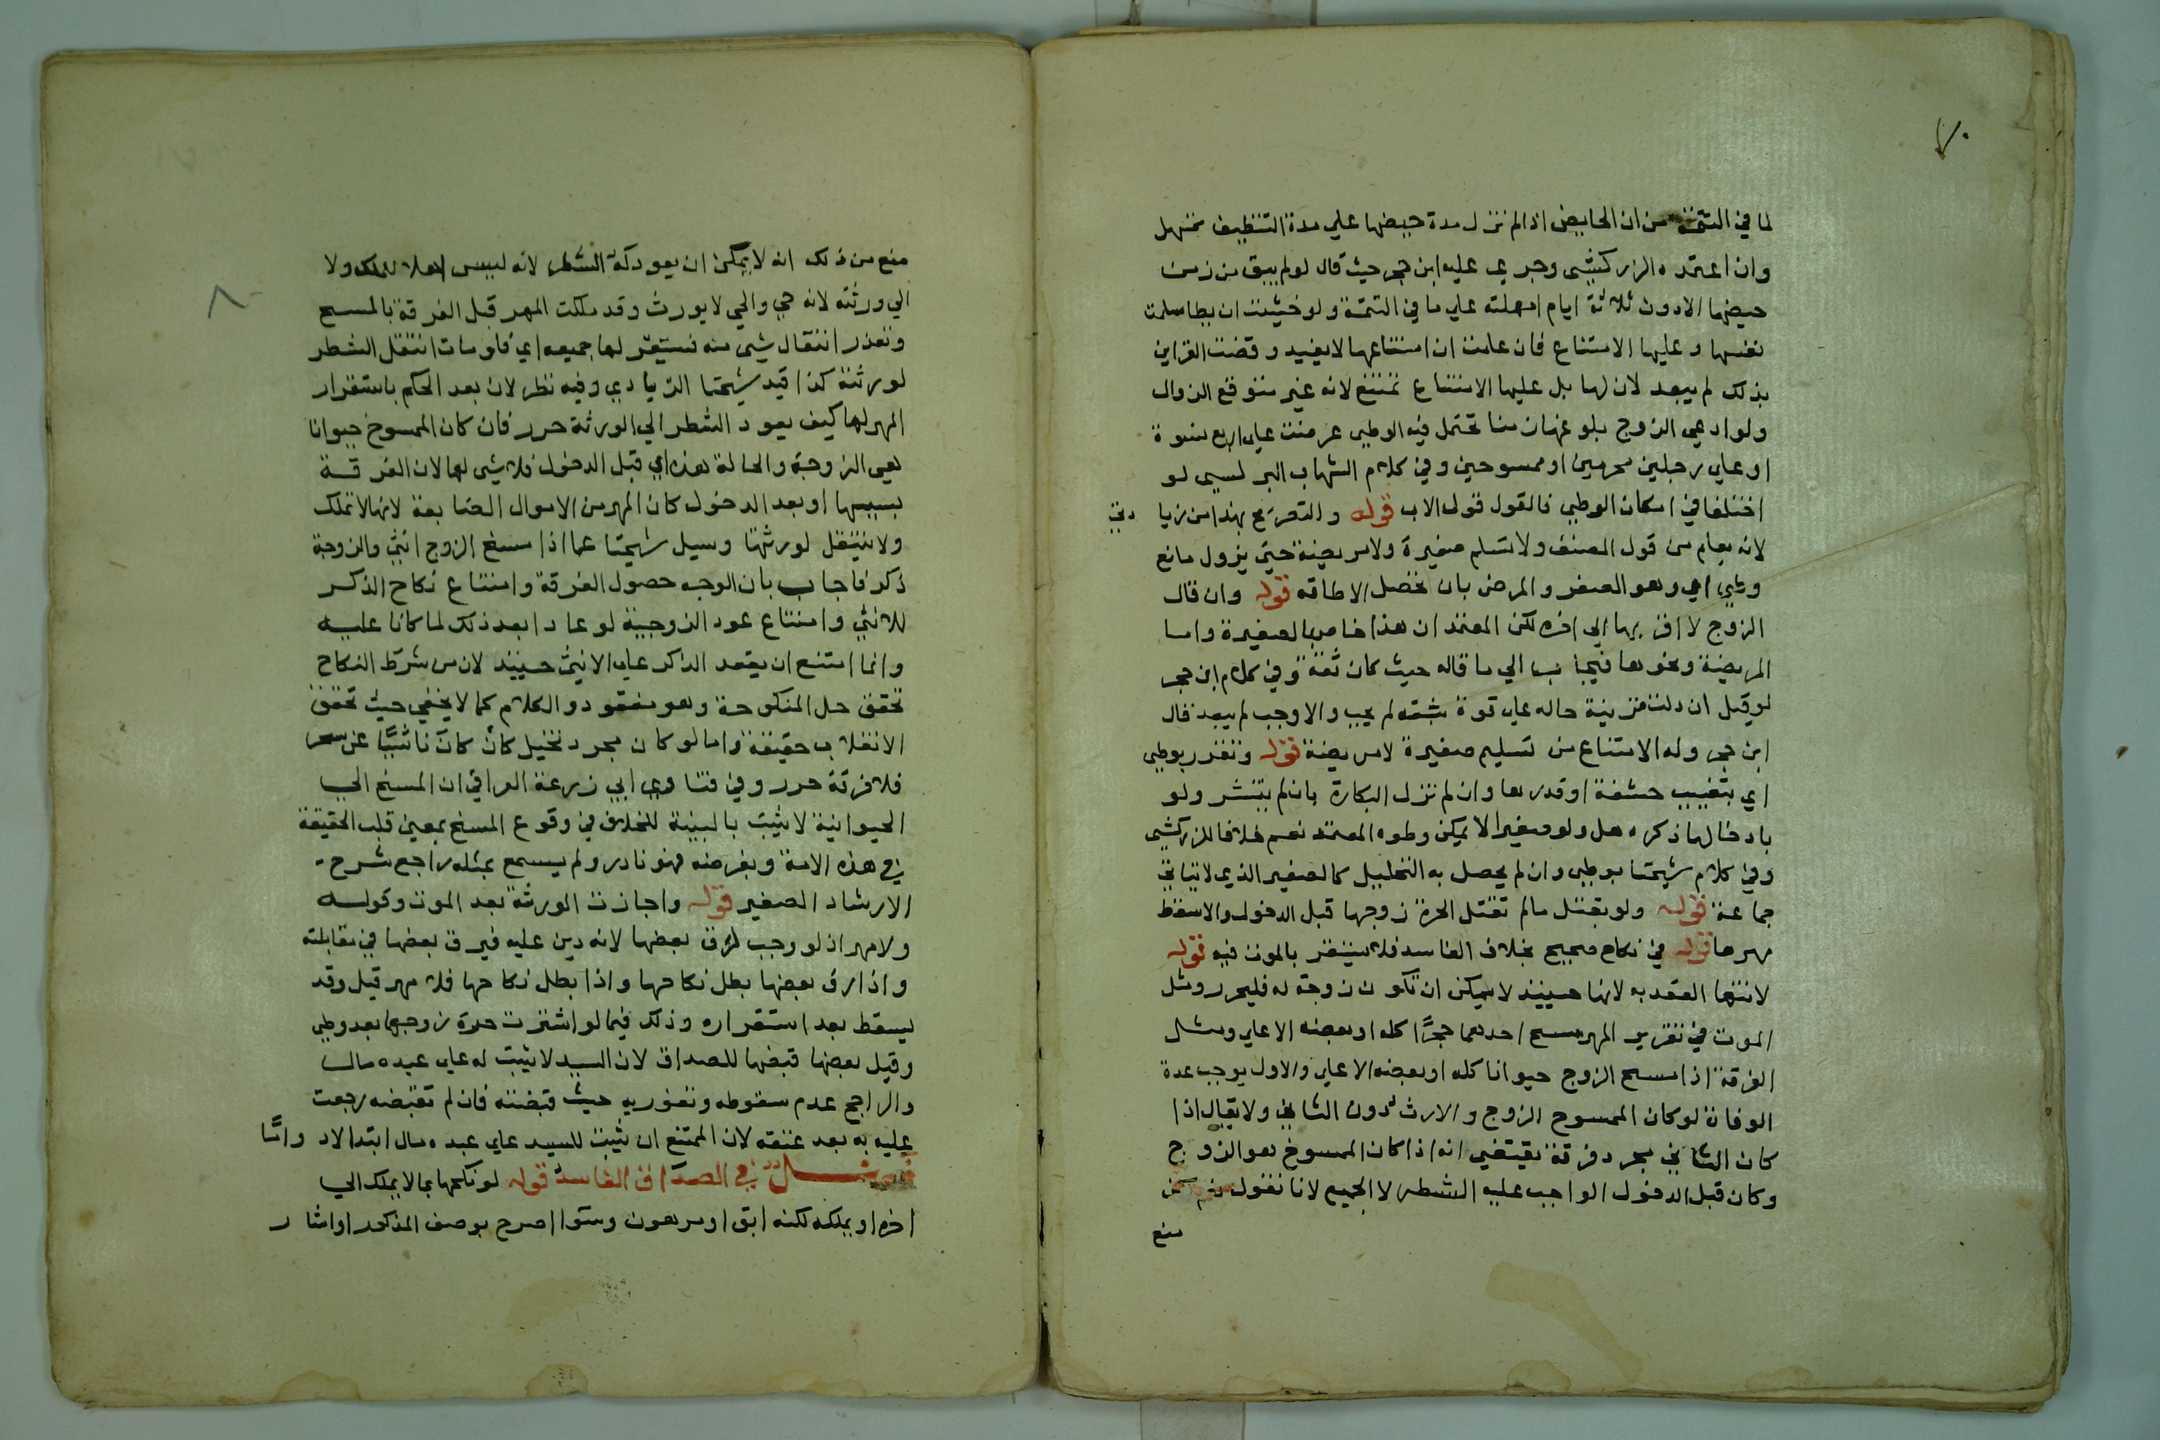 لما في التتمة من ان الحايض اذا لم تزل مدة حيضها علي مدة التنظيف تمتهل
وان اعتمده الزركشي وجري عليه ابن حجر حيث قال لو لم يبق من زمن
حيضها الا دون ثلاثة ايام امهلته علي ما في التتمة ولو خشيت ان يطا سلمت
نفسها وعليها الامتناع فان علمت ان امتناعها لا يفيد وقضت القراين
بذلك لم يبعد لان لها بل عليها الامتناع تمتنع لانه غير متوقع الزوال
ولو ادعي الزوج بلوغها زمنا تحتمل فيه الوطي عرضت علي اربع نسوة
او علي رجلين محرمين او ممسوحين وفي كلام الشهاب البرلسي لو
اختلفا في امكان الوطي فالقول قول الاب قوله والتصريح بهذا من زيا دتي
لانه يعلم من قول المصنف ولا تسلم صغيرة ولا مريضة حتي يزول مانع
وطي اي وهو الصغر والمرض بان تحصل الاطاقه قوله وان قال
الزوج لا اقربها الي اخره لكن المعتمد ان هذا خاص بالصغيرة واما
المريضة ونحوها فيجاب الي ما قاله حيث كان ثقة وفي كلام ابن حجر
لو قيل ان دلت قرينية حاله علي قوة شبقه لم يجب والاوجب لم يبعد قال
ابن حجر وله الامتناع من تسليم صغيرة لا مريضة قوله وتقرر بوطي
اي بتغييب حشفة او قدرها وان لم تزل البكارة بان لم ينتشر ولو
بادخالها ذكره هل ولو صغيرا لا يمكن وطوه المعتمد نعم خلافا للزركشي
وفي كلام شيحنا بوطي وان لم يحصل به التحليل كالصغير الذي لا يتاتي
جماعة قوله ولو بقتل ما لم تقتل الحرة زوجها قبل الدخول والا سقط
مهرها قوله في نكاح صحيح بخلاف الفاسد فلا يستقر بالموت فيه قوله
لانتها العقد به لانها حينيذ لا يمكن ان تكون زوجة له فليحرر ومثل
الموت في تقرير المهر مسخ احدهما حجرًا كله او بعضه الاعلي ومثل
الفرقة اذا مسخ الزوج حيوانا كله او بعضه الاعلي والاول يوجب عدة
الوفاة لو كان الممسوخ الزوج والارث دون الثاني ولا يقال اذا
كان الثاني مجرد فرقة يقتضي انه اذا كان الممسوخ هو الزوج
وكان قبل الدخول الواجب عليه الشطر لا الجميع لانا نقول نعم لكن
منع
منع من ذلك انه لا يمكن ان يعود له الشطر لانه ليس اهلا للملك ولا
الي ورثته لانه حي والحي لا يورث وقد ملكت المهر قبل الفرقة بالمسخ
وتعذر انتقال شي منه فستقر لها جميعه اي فلو مات انتقل الشطر
لورثته كذا قيد شيحنا الزيادي وفيه نظر لان بعد الحكم باستقرار
المهر لها كيف يعود الشطر الي الورثة حرر فان كان الممسوخ حيوانا
هي الزوجة والحالة هذه اي قبل الدخول فلا شي لها لان الفرقة
بسببها او بعد الدخول كان المهر من الاموال الضايعة لانها لا تملك
ولا ينتقل لورثتها وسيل شيحنا عما اذا مسخ الزوج انثي والزوجة
ذكر فاجاب بان الوجه حصول الفرقة وامتناع نكاح الذكر
للانثي وامتناع عود الزوجية لو عادا بعد ذلك لما كانا عليه
وانما امتنع ان يعقد الذكر علي الانثي حينيذ لان من شرط النكاح
تحقق حل المنكوحة وهو مفقود والكلام كما لا يخفي حيث تحقق
الانقلاب حقيقة واما لو كان مجرد تخيل كان كان ناشيًا عن سحر
فلا فرقة حرر وفي فتاوي ابي زرعة العراقي ان المسخ الي
الحيوانية لا يثبت بالبينة للخلاف في وقوع المسخ بمعني قلب الحقيقة
في هذه الامة وبفرضه فهو نادر ولم يسمع بمثله راجع شرح
الارشاد الصغير قوله واجازت الورثة بعد الموت وقوله
ولا مهر اذ لو وجب لرق بعضها لانه دين عليه فيرق بعضها في مقابلته
واذا رق بعضها بطل نكاحها واذا بطل نكاحها فلا مهر قيل وقد
يسقط بعد استقراره وذلك فيما لو اشترت حرة زوجها بعد وطي
وقيل بعضها قبضها للصداق لان السيد لا يثبت له علي عبده مال
والراجح عدم سقوطه وتفوريه حيث قبضته فان لم تقبضه رجعت
عليه به بعد عتقه لان الممتنع ان يثبت للسيد علي عبده مال ابتدا لا د واما
فصل في الصداق الفاسد قوله لو نكحها بما لا يملكه الي
اخره او يملكه لكنه ابق او مرهون وسوا اصرح بوصف المذكور او اشار